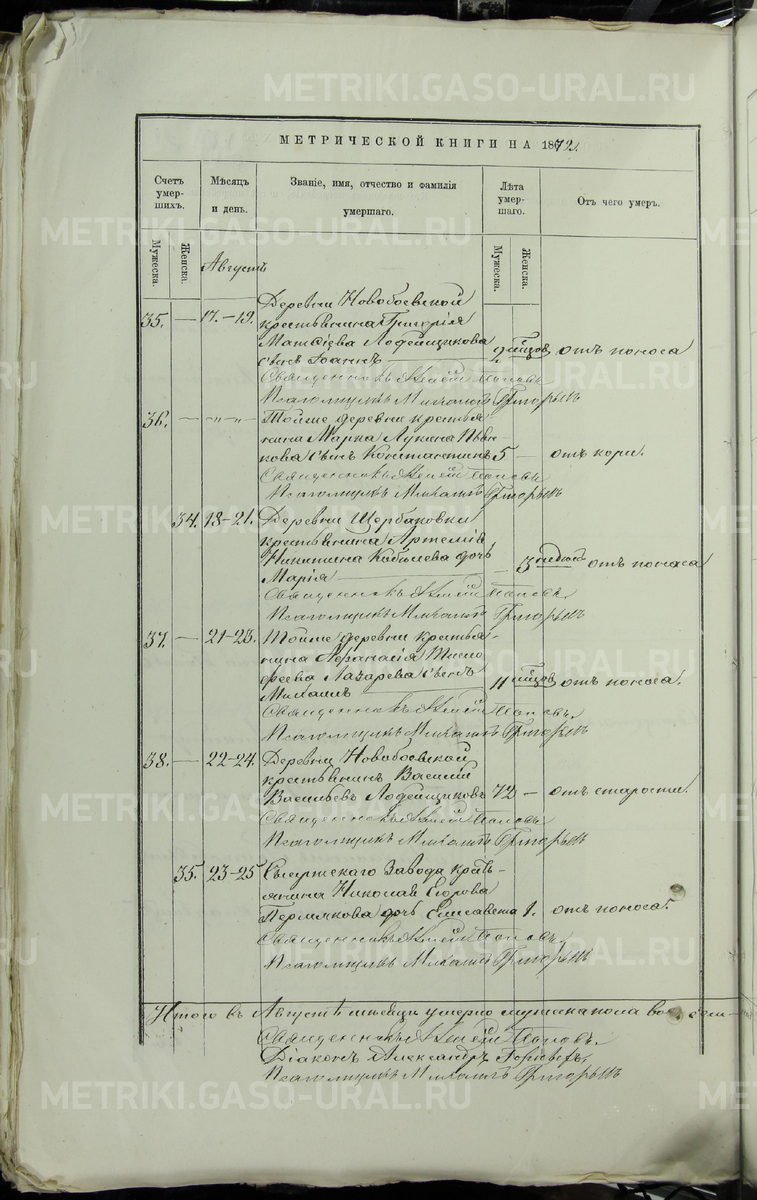 МЕТРИЧЕСКОЙ КНИГИ НА 1872.
Счетъ умер- шихъ.
Мѣсяцъ и день.
Званіе, имя, отчество и фамилія умершаго.
Лѣта умер- шаго.
Отъ чего умеръ.
Мужеска. Женска. Мужеска. Женска.
Августъ
Деревни Новобоевской
35. — 17.-19. крестьянина Григорія
Матѳіева Лодейщикова
сынъ Іоаннъ 9 мѣсяцовъ отъ поноса
Священникъ Попов
Псаломщикъ Михаилъ Григорьев
36. — -"- Тойже деревни крестья-
нина Марка Лукина Пьян
кова сынъ Константинъ 5 — отъ кори.
Священникъ Попов
Псаломщикъ Михаилъ Григорьев
34. 18-21. Деревни Щербаковки
крестьянина Артемія
Никитина Кобелева дочь
Марія 3 недѣль отъ поноса
Священникъ Попов
Псаломщикъ Михаилъ Григорьев
37. — 21-23. Тойже деревни крестья-
нина Аѳанасія Тимо
ѳеева Лазарева сынъ
Михаилъ 11 мѣсяцов отъ поноса.
Священникъ Попов
Псаломщикъ Михаилъ Григорьев
38. — 22-24. Деревни Новобоевской
крестьянинъ Василій
Васильевъ Лодейщиковъ 72 — отъ старости.
Священникъ Попов
Псаломщикъ Михаилъ Григорьев
35. 23-25 Сысертскаго Завода кресть-
янина Николая Егорова
Пермякова дочь Елисавета 1. отъ поноса.
Священникъ Попов
Псаломщикъ Михаилъ Григорьев
Итого въ Августѣ мѣсяцѣ умерло мужеска пола
Священникъ Попов
Діаконъ Александръ
Псаломщикъ Михаилъ Григорьев
METRIKI.GASO-URAL.RU